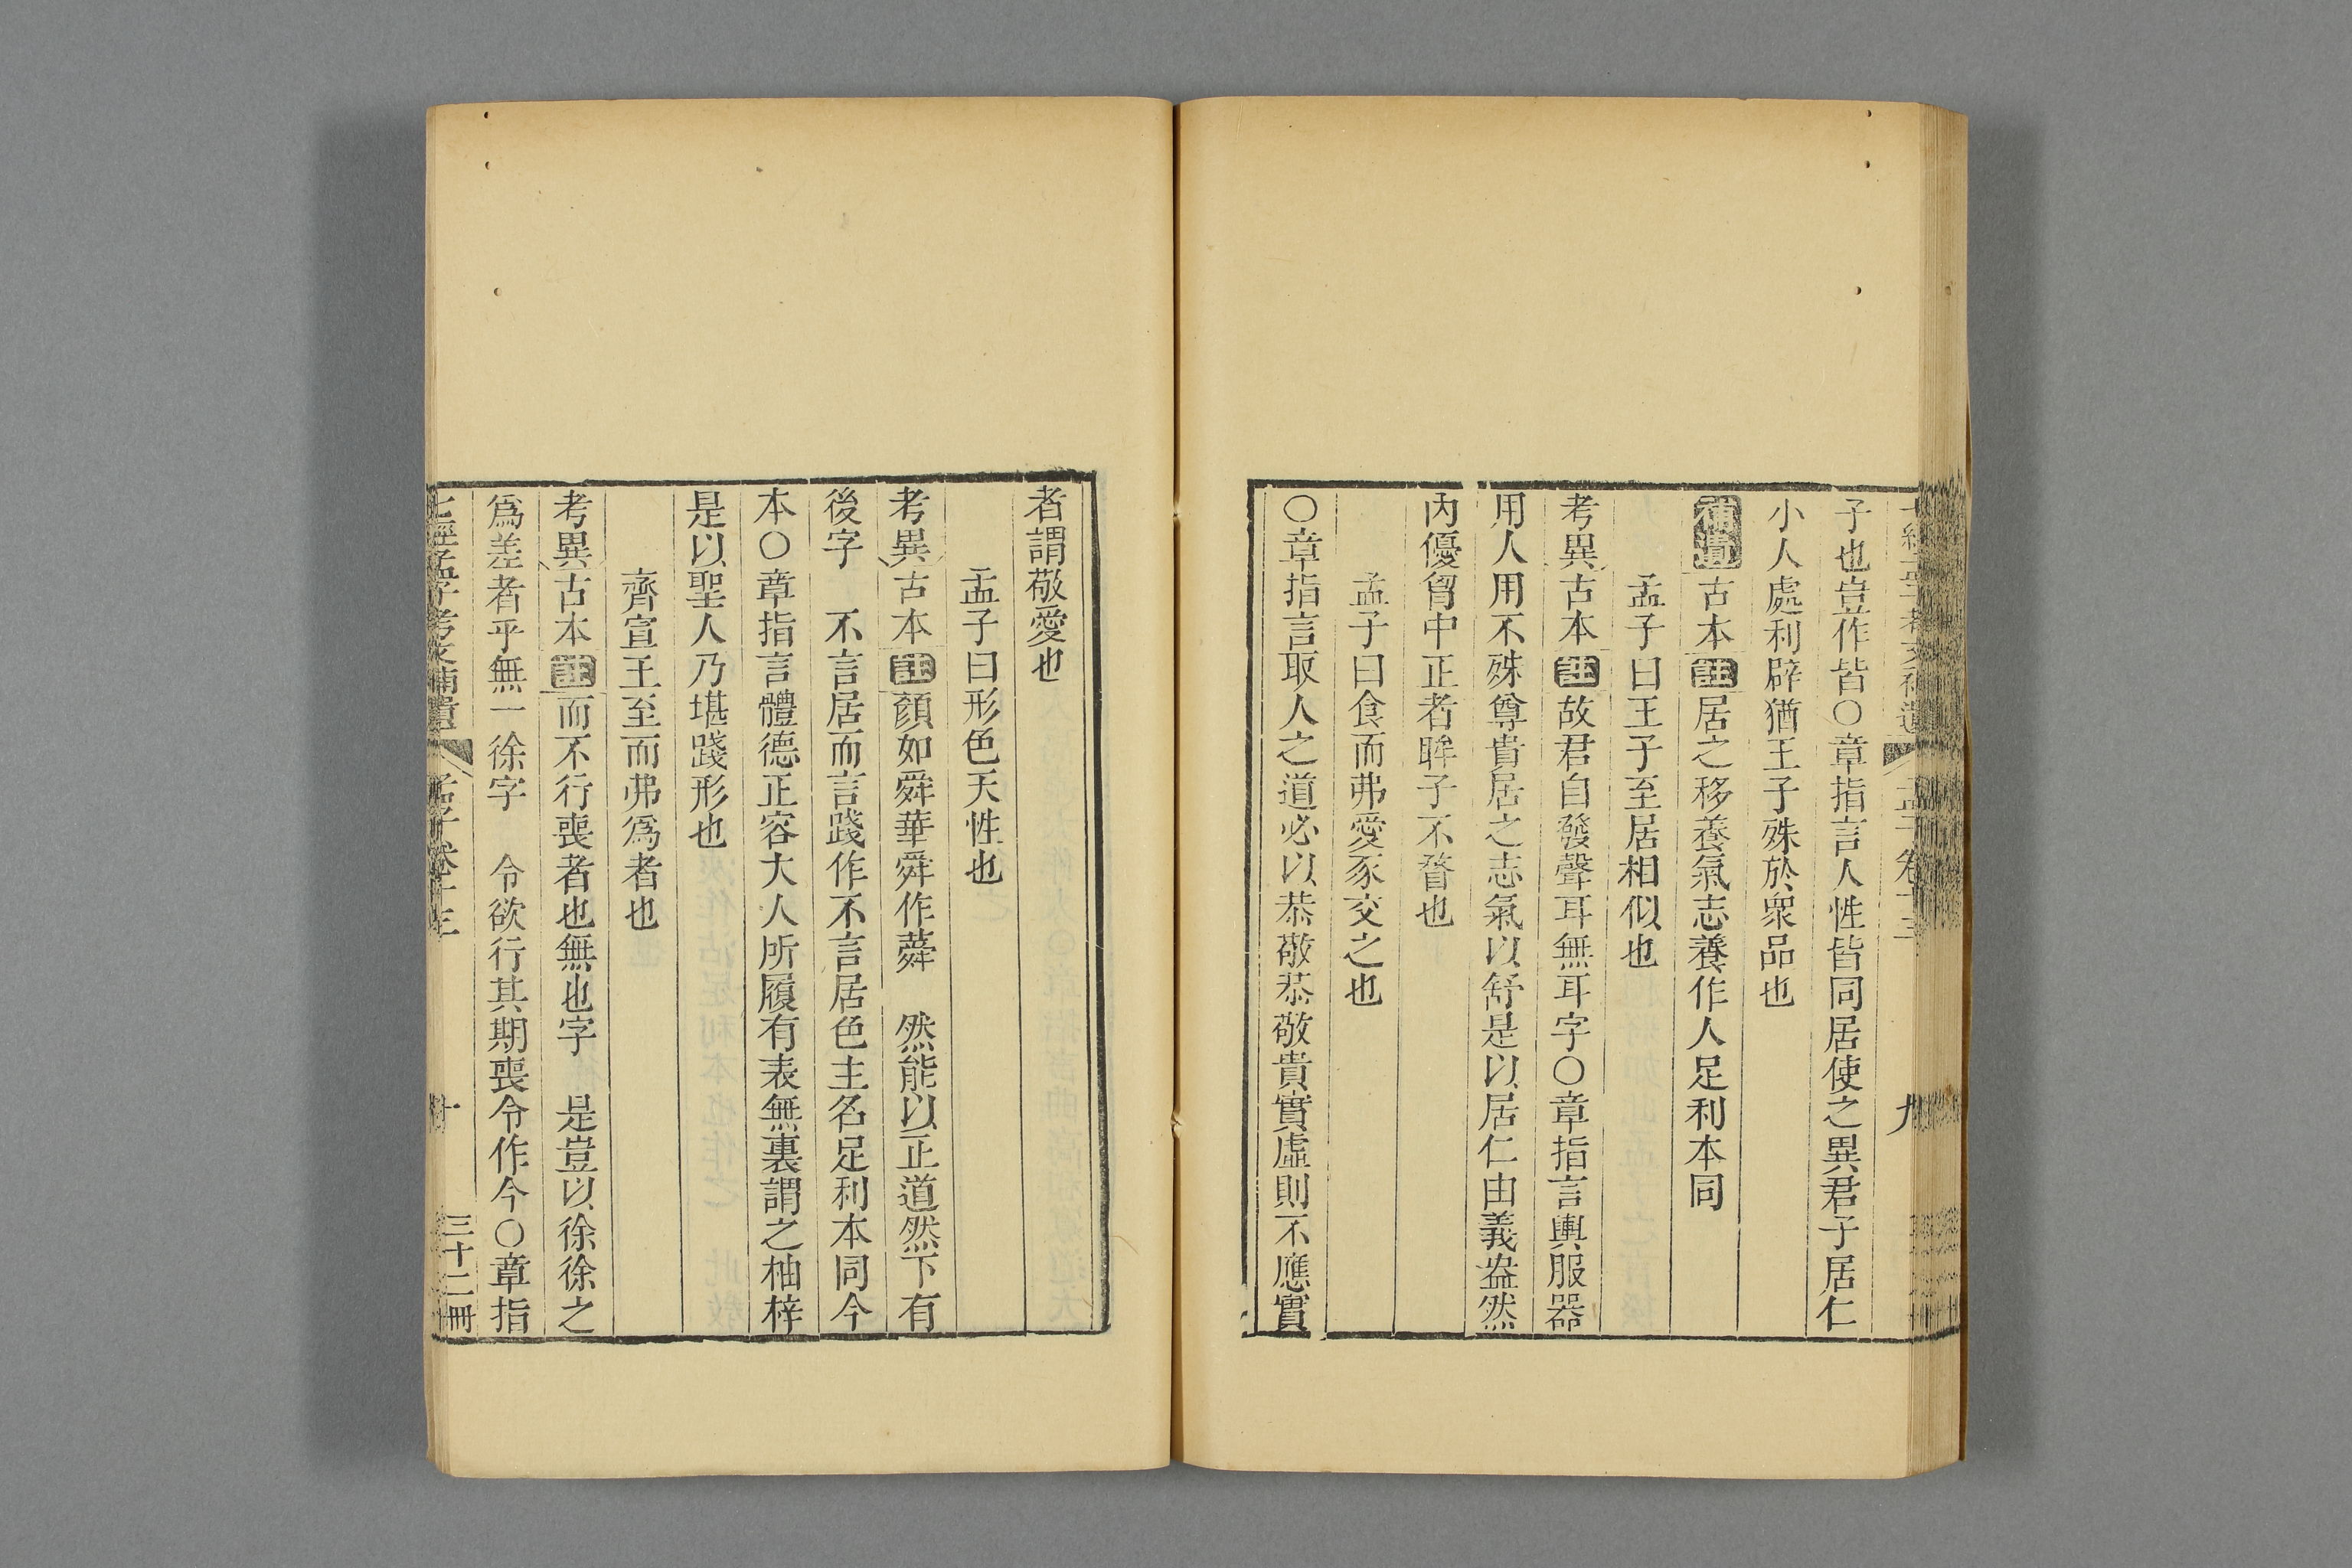 七經孟子考文補遺 孟子卷十三 九
子也豈作皆〇章指言人性皆同居使之異君子居仁
小人處利辟猶王子殊於衆品也
補遺古本註居之移養氣志養作人足利本同
孟子曰王子至居相似也
考異古本註故君自發聲耳無耳字〇章指言輿服器
用人用不殊尊貴居之志氣以舒是以居仁由義盎然
內優胷中正者眸子不瞀也
孟子曰食而弗愛豕交之也
〇章指言取人之道必以恭敬恭敬貴實虛則不應實
者謂敬愛也
孟子曰形色天性也
考異古本註顏如舜華舜作蕣 然能以正道然下有
後字 不言居而言踐作不言居色主名足利本同今
本〇章指言體德正容大人所履有表無裏謂之柚梓
是以聖人乃堪踐形也
齊宣王至而弗爲者也
考異古本註而不行喪者也無也字 是豈以徐徐之
爲差者乎無一徐字 令欲行其期喪令作今〇章指
七經孟子考文補遺 孟子卷十三 十 三十二冊